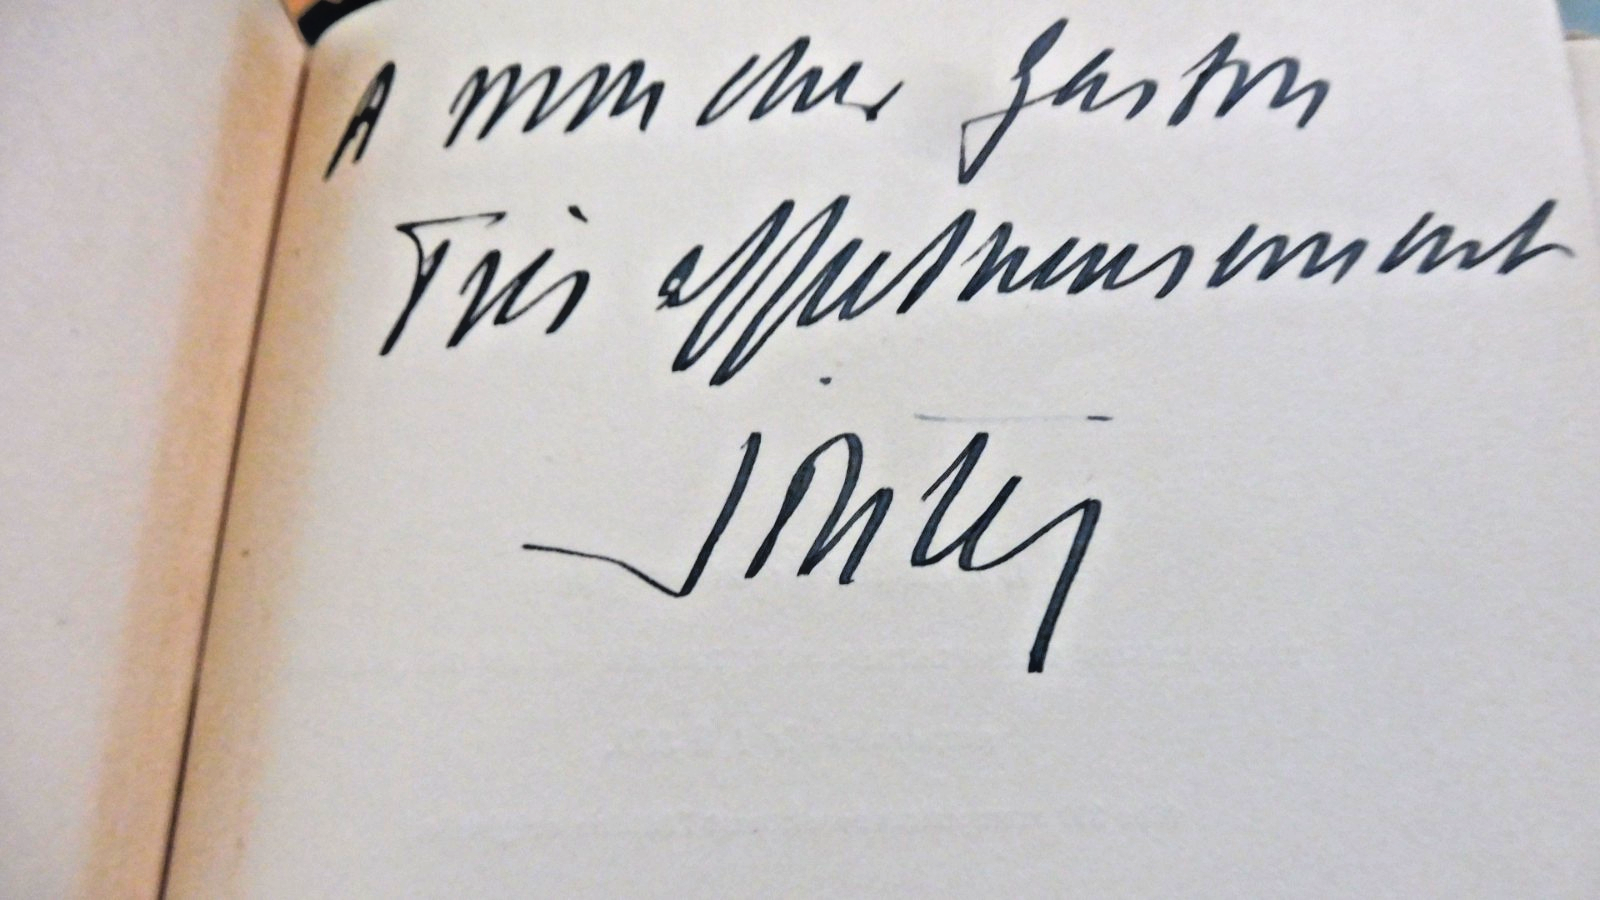 A mon cher Gaston
Très affectueusement